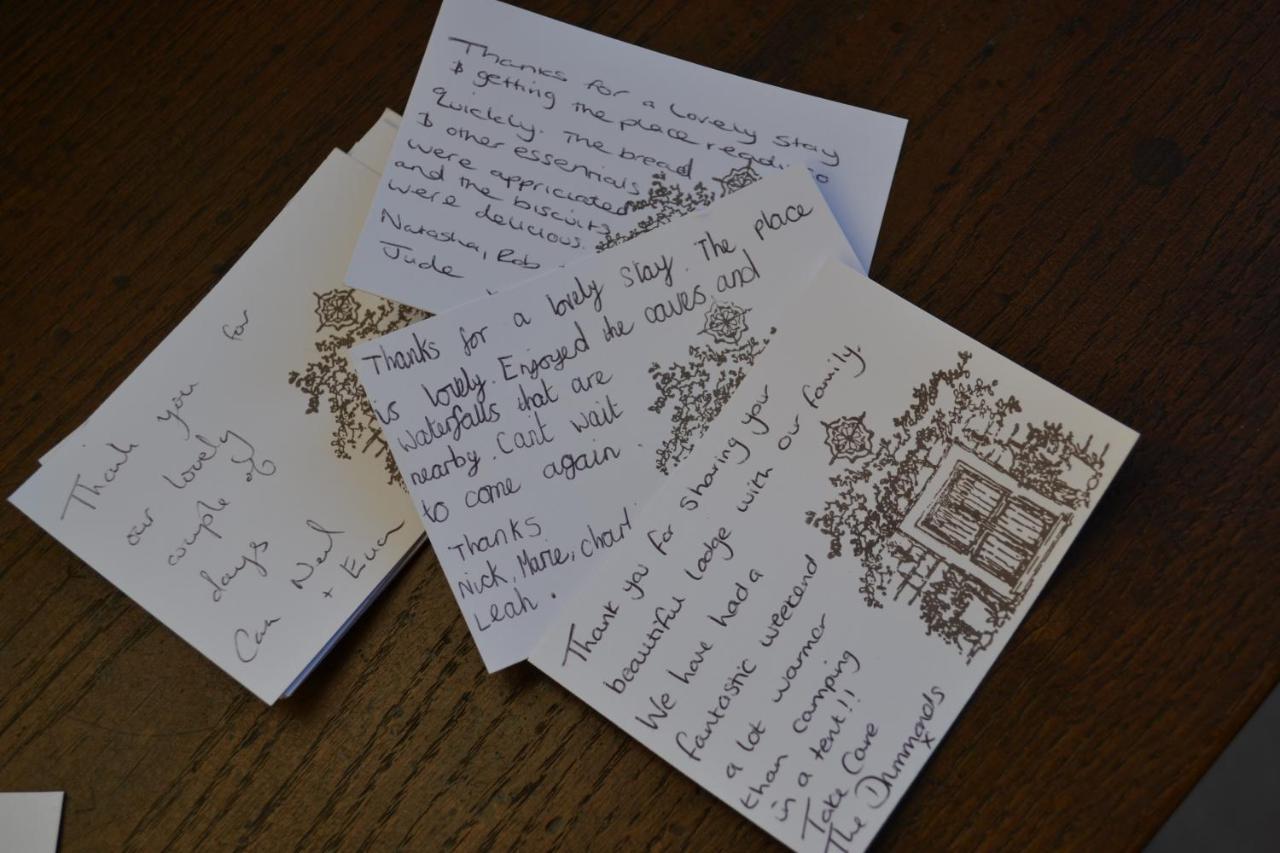 Thanks for a lovely stay
& getting the place ready so
quickly. The bread
& other essentials
were appriciated
and the biscuits
were delicious.
Natasha, Rob
Jude
Thank you for
our lovely
couple of
days
Neil
+ Euan
Thanks for a lovely stay. The place
is lovely. Enjoyed the caves and
waterfalls that are
nearby. Cant wait
to come again.
Thanks
Nick, Marie, charl
Leah.
Thank you for sharing your
beautiful lodge with our family.
We have had a
fantastic weekend
a lot warmer
than camping
in a tent!!
Take Care
The Drummonds
x